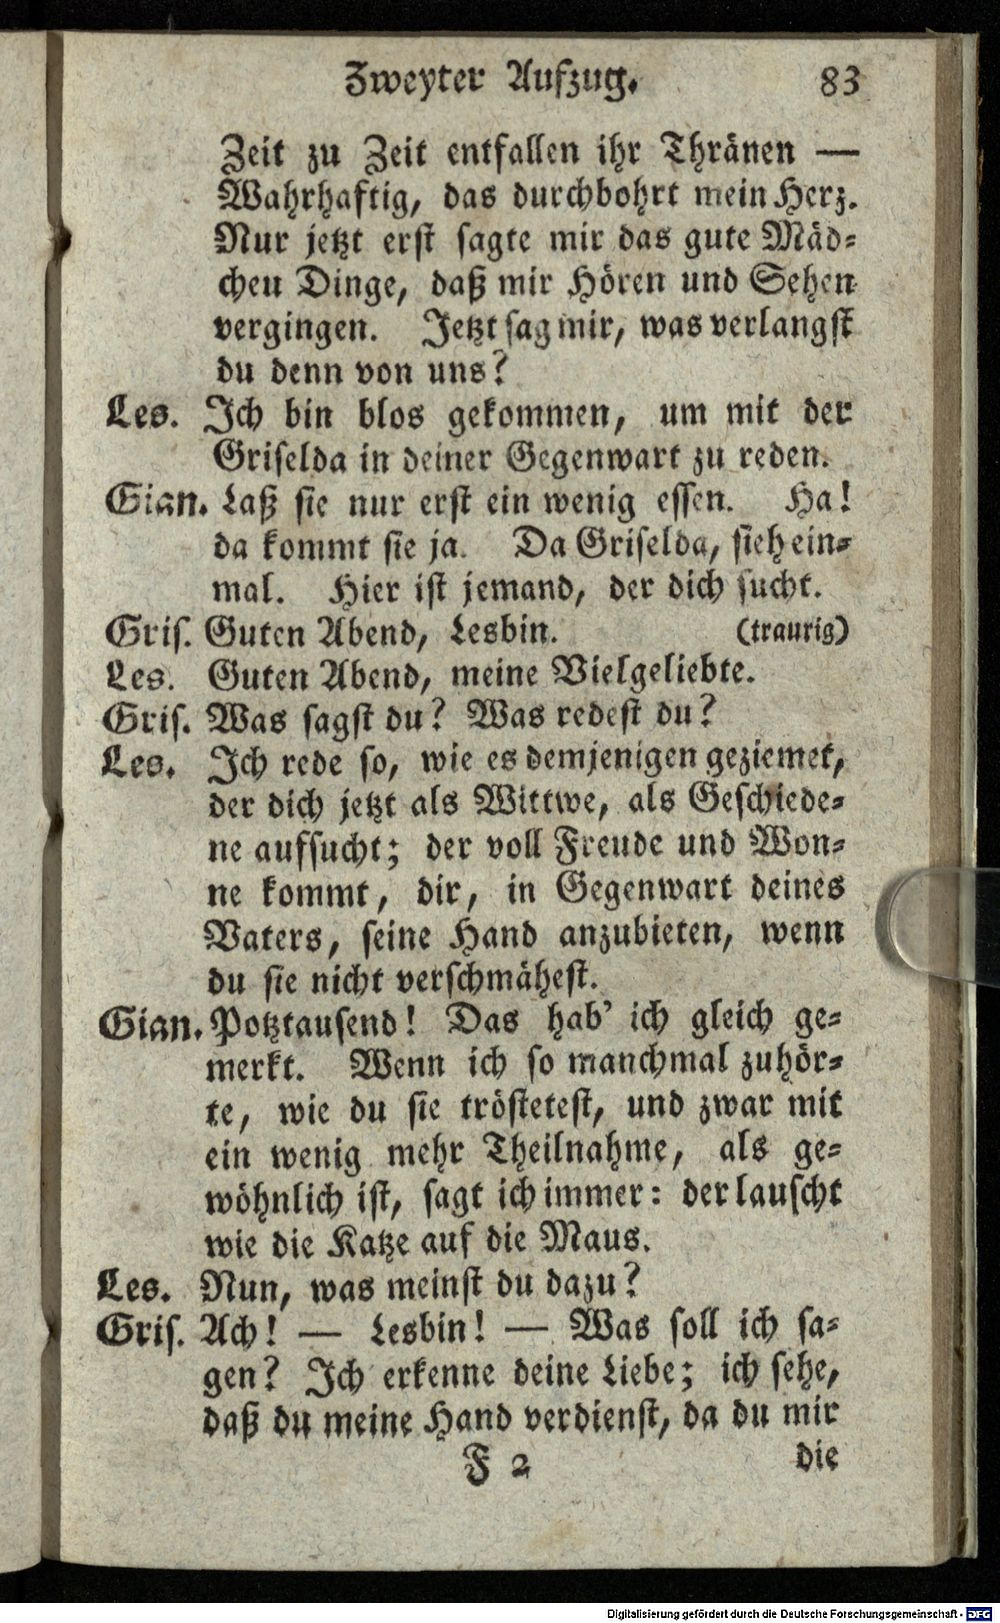 Zweyter Aufzug. 83
Zeit zu Zeit entfallen ihr Thränen —
Wahrhaftig, das durchbohrt mein Herz.
Nur jetzt erst sagte mir das gute Mäd-
chen Dinge, daß mir Hören und Sehen
vergingen. Jetzt sag mir, was verlangst
du denn von uns?
Les. Ich bin blos gekommen, um mit der
Griselda in deiner Gegenwart zu reden.
Gian. Laß sie nur erst ein wenig essen. Ha!
da kommt sie ja. Da Griselda, sieh ein-
mal. Hier ist jemand, der dich sucht.
Gris. Guten Abend, Lesbin. (traurig)
Les. Guten Abend, meine Vielgeliebte.
Gris. Was sagst du? Was redest du?
Les. Ich rede so, wie es demjenigen geziemet,
der dich jetzt als Wittwe, als Geschiede-
ne aufsucht; der voll Freude und Won-
ne kommt, dir, in Gegenwart deines
Vaters, seine Hand anzubieten, wenn
du sie nicht verschmähest.
Gian. Potztausend! Das hab' ich gleich ge-
merkt. Wenn ich so manchmal zuhör-
te, wie du sie tröstetest, und zwar mit
ein wenig mehr Theilnahme, als ge-
wöhnlich ist, sagt ich immer: der lauscht
wie die Katze auf die Maus.
Les. Nun, was meinst du dazu?
Gris. Ach! — Lesbin! — Was soll ich sa-
gen? Ich erkenne deine Liebe; ich sehe,
daß du meine Hand verdienst, da du mir
F 2 die
Digitalisierung gefördert durch die Deutsche Forschungsgemeinschaft - DFG